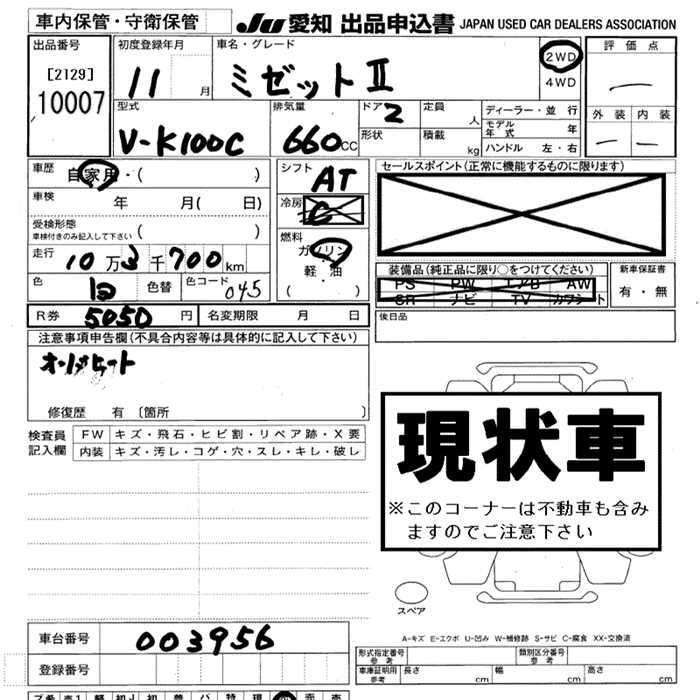 車内保管・守衛保管
JU 愛知 出品申込書 JAPAN USED CAR DEALERS ASSOCIATION
出品番号
[2129]
10007
初度登録年月
11 月
車名・グレード
ミゼットⅡ
2WD
4WD
評価点
外装 内装
型式
V-K100C
排気量
660cc
ドア 2
形状
定員 人
積載 kg
ディーラー・並行
モデル年式 年
ハンドル 左・右
車歴 自家用・( )
車検 年 月( 日)
受検形態
車検付きのみ記入して下さい ( )
走行 10万3千700km
色 白 色替 色コード 045
シフト AT
冷房
燃料 ガソリン
・
軽・油
( )
セールスポイント(正常に機能するものに限ります)
装備品(純正品に限り○をつけてください)
PS PW エアB AW
SR ナビ TV カワシート
新車保証書
有・無
R券 5050円 名変期限 月 日
後日品
注意事項申告欄(不具合内容等は具体的に記入して下さい)
オーバーヒート
修復歴 有 〔箇所 〕
検査員
記入欄
FW キズ・飛石・ヒビ割・リペア跡・X要
内装 キズ・汚レ・コゲ・穴・スレ・キレ・破レ
現状車
※このコーナーは不動車も含み
ますのでご注意下さい
スペア
A-キズ E-エクボ U-凹み W-補修跡 S-サビ C-腐食 XX-交換済
車台番号 003956
登録番号
形式指定番号
参考
類別区分番号
参考
車庫証明用
参考
長さ cm 幅 cm 高さ cm